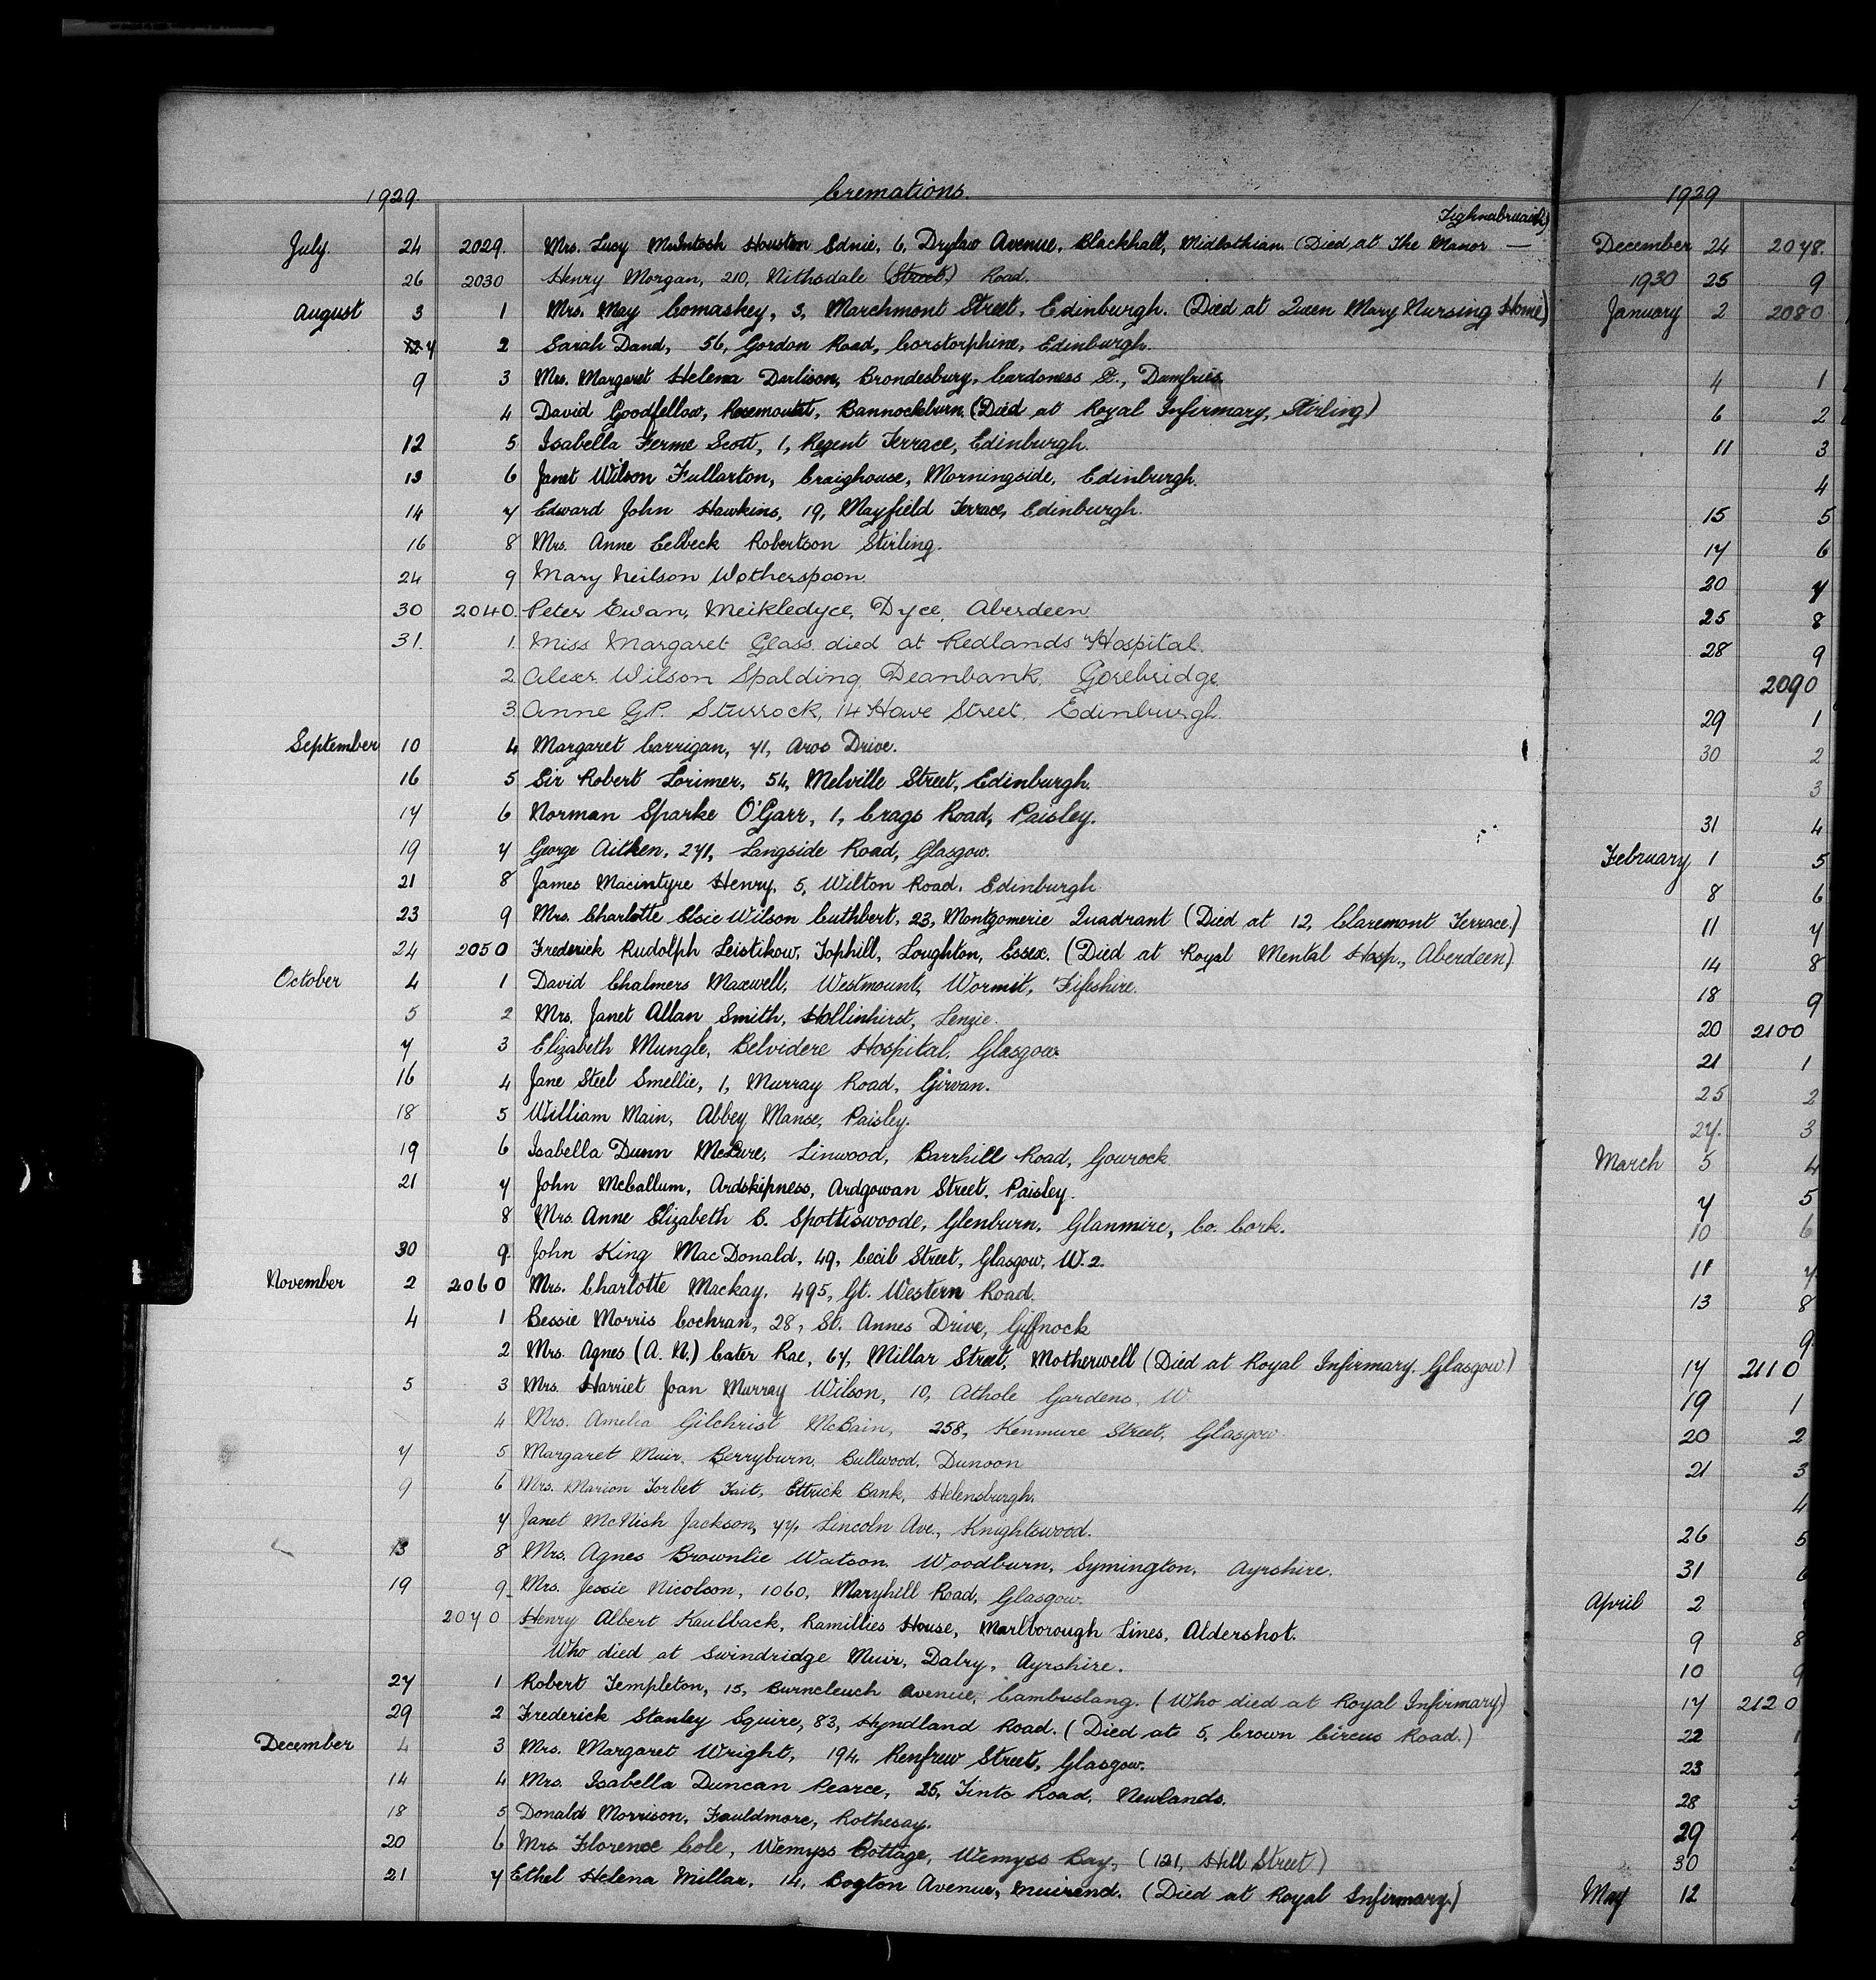 1929. Cremations.
Tighnabruaich)
July. 24 2029. Mrs. Lucy McIntosh Houston Ednie, 6, Drylaw Avenue, Blackhall, Midlothian. (Died at The Manor —
26 2030 Henry Morgan, 210, Nithsdale (Street.) Road.
August 3 1 Mrs. May Comaskey, 3, Marchmont Street, Edinburgh. (Died at Queen Mary Nursing Home)
4 2 Sarah Dand, 56, Gordon Road, Corstorphine, Edinburgh.
9 3 Mrs. Margaret Helena Darlison, Brondesbury, Cardoness St., Dumfries.
4 David Goodfellow, Rosemount, Bannockburn. (Died at Royal Infirmary, Stirling)
12 5 Isabella Ferme Scott, 1, Regent Terrace, Edinburgh.
13 6 Janet Wilson Fullarton, Craighouse, Morningside, Edinburgh.
14 7 Edward John Hawkins, 19, Mayfield Terrace, Edinburgh.
16 8 Mrs. Anne Eelbeck Robertson Stirling.
24 9 Mary Neilson Wotherspoon
30 2040. Peter Ewan, Meikledyce, Dyce, Aberdeen.
31. 1. Miss Margaret Glass. died at Redlands Hospital.
2 Alexr. Wilson Spalding Deanbank, Gorebridge.
3. Anne G.P. Sturrock, 14 Howe Street, Edinburgh.
September 10 4 Margaret Carrigan, 71, Aros Drive.
16 5 Sir Robert Lorimer, 54, Melville Street, Edinburgh.
17 6 Norman Sparke O'Garr, 1, Crags Road, Paisley.
19 7 George Aitken, 271, Langside Road, Glasgow.
21 8 James Macintyre Henry, 5, Wilton Road, Edinburgh
23 9 Mrs. Charlotte Elsie Wilson Cuthbert, 23, Montgomerie Quadrant (Died at 12, Claremont Terrace.)
24 2050 Frederick Rudolph Leistikow, Tophill, Loughton, Essex. (Died at Royal Mental Hosp., Aberdeen)
October 4 1 David Chalmers Maxwell, Westmount, Wormit, Fifeshire.
5 2 Mrs. Janet Allan Smith, Hollinhirst, Lenzie.
7 3 Elizabeth Mungle, Belvidere Hospital, Glasgow.
16 4 Jane Steel Smellie, 1, Murray Road, Girvan.
18 5 William Main, Abbey Manse, Paisley.
19 6 Isabella Dunn McLure, Linwood, Barrhill Road, Gourock
21 7 John McCallum, Ardskipness, Ardgowan Street, Paisley.
8 Mrs. Anne Elizabeth B. Spottiswoode, Glenburn, Glanmire, Co. Cork.
30 9. John King MacDonald, 49, Cecil Street, Glasgow, W.2.
November 2 2060 Mrs. Charlotte Mackay, 495, Gt. Western Road.
4 1 Bessie Morris Cochran, 28, St. Annes Drive, Giffnock
2 Mrs. Agnes (A. N.) Cater Rae, 67, Millar Street, Motherwell (Died at Royal Infirmary. Glasgow)
5 3 Mrs. Harriet Joan Murray Wilson, 10, Athole Gardens, W
4 Mrs. Amelia Gilchrist McBain, 258, Kenmure Street, Glasgow
7 5 Margaret Muir, Berryburn, Bullwood, Dunoon
9 6 Mrs. Marion Torbet Tait, Ettrick Bank, Helensburgh.
7 Janet McNish Jackson, 77, Lincoln Ave., Knightswood.
13 8 Mrs. Agnes Brownlie Watson. Woodburn, Symington, Ayrshire.
19 9 Mrs. Jessie Nicolson, 1060, Maryhill Road, Glasgow.
2070 Henry Albert Kaulback, Ramillies House, Marlborough Lines, Aldershot.
Who died at Swindridge Muir, Dalry, Ayrshire.
27 1 Robert Templeton, 15, Burncleuch Avenue, Cambuslang. (Who died at Royal Infirmary)
29 2 Frederick Stanley Squire, 83, Hyndland Road. (Died at 5, Crown Circus Road.)
December 4 3 Mrs. Margaret Wright, 194, Renfrew Street, Glasgow.
14 4 Mrs. Isabella Duncan Pearce, 35, Tinto Road, Newlands.
18 5 Donald Morrison, Fauldmore, Rothesay.
20 6 Mrs. Florence Cole, Wemyss Cottage, Wemyss Bay, (121, Hill Street)
21 7 Ethel Helena Millar, 14, Bogton Avenue, Muirend. (Died at Royal Infirmary.)
1929
December 24 2078.
1930 25 9
January 2 2080
4 1
6 2
11 3
4
15 5
17 6
20 7
25 8
28 9
2090
29 1
30 2
3
31 4
February 1 5
8 6
11 7
14 8
18 9
20 2100
21 1
25 2
27. 3
March 5 4
7 5
10 6
11 7
13 8
9
17 2110
19 1
20 2
21 3
4
26 5
31 6
April 2
9 8
10 9
17 2120
22 1
23
28 3
29
30
May 12